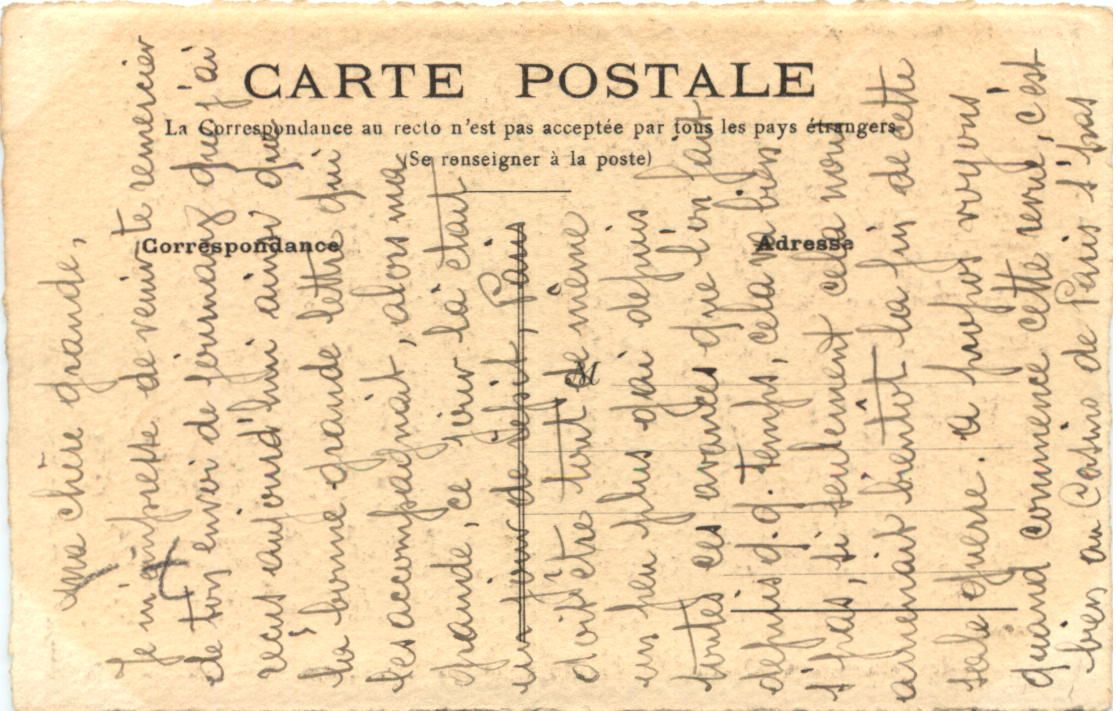 CARTE POSTALE
La Correspondance au recto n'est pas acceptée par tous les pays étrangers
(Se renseigner à la poste)
Correspondance
Adresse
M
Ma chère grande,
Je m'empresse de venir te remercier
de ton envoi de journaux que j'ai
reçus aujourd'hui ainsi que
la bonne grande lettre qui
les accompagnait, alors ma
grande, ce jour là était
un jour de Paris
doit être tout de même
un peu plus gai depuis
toutes ces avances que l'on fait
depuis q. q. temps, cela va bien
s'pas, si seulement cela nous
amenait bientôt la fin de cette
sale guerre. à propos voyons
quand commence cette revue, c'est
bien au Casino de Paris s'pas